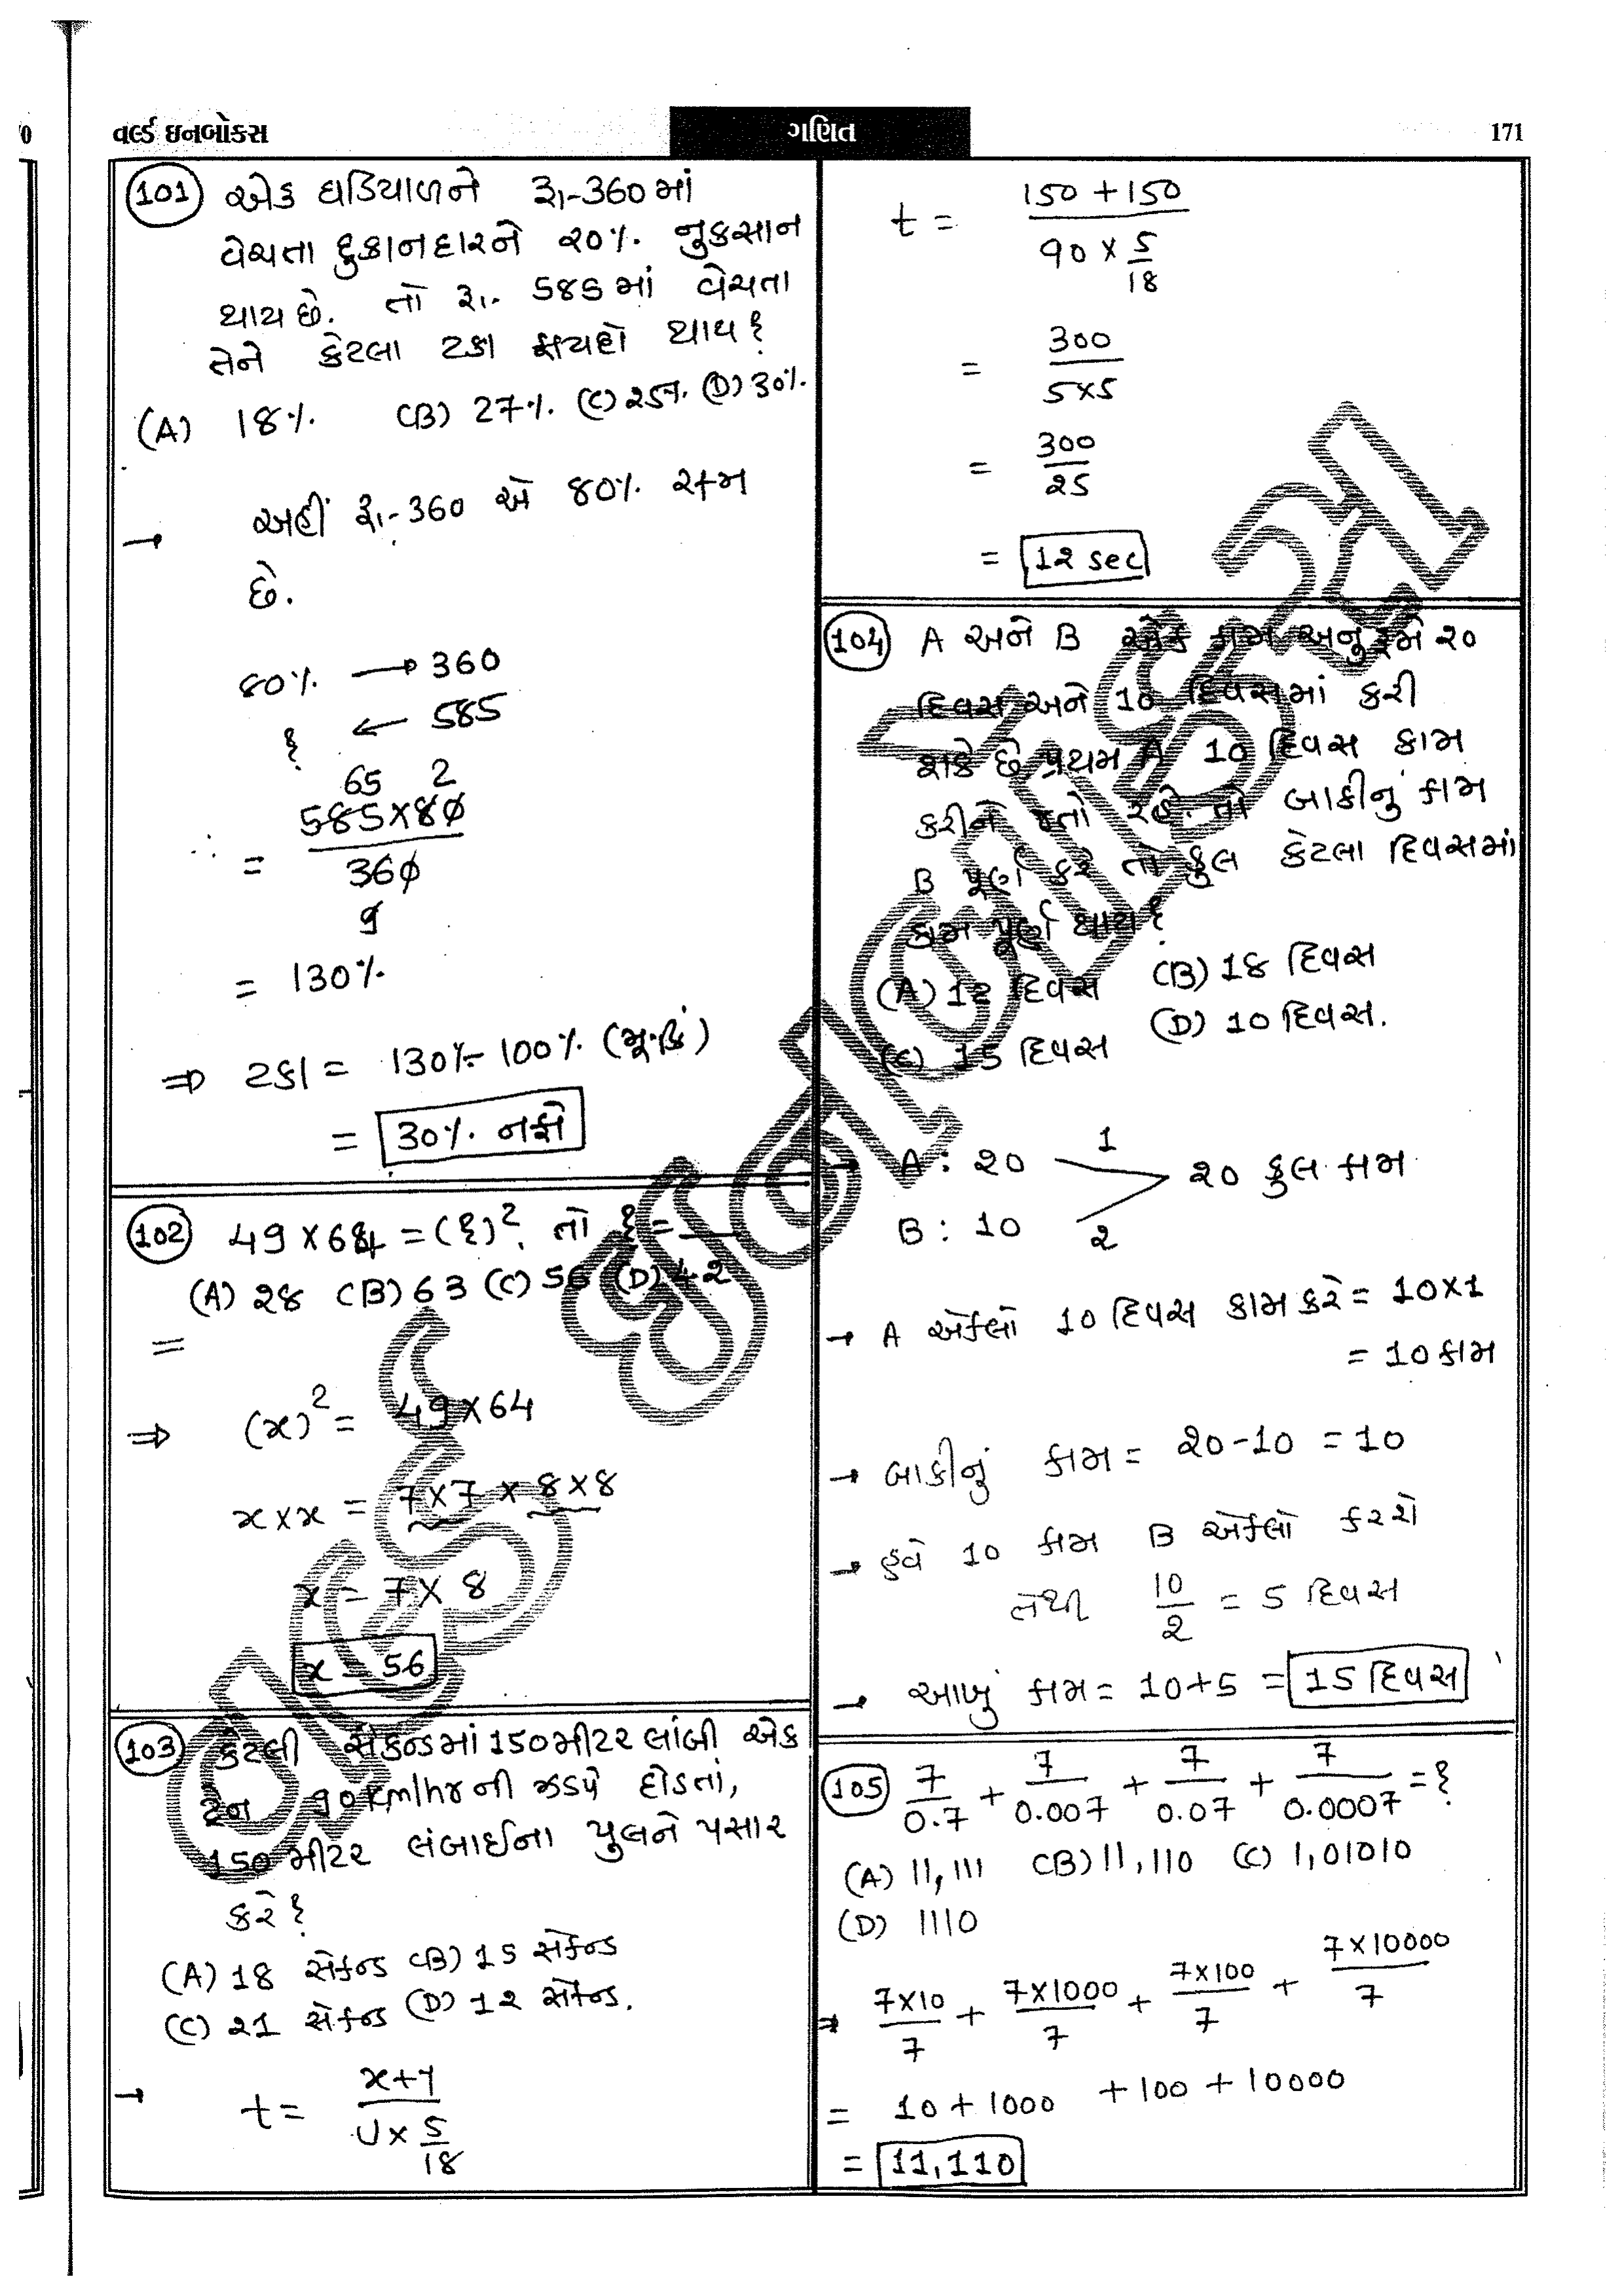 વર્લ્ડ ઇનબોક્સ
ગણિત
171
101 એક ઘડિયાળને રૂા-360માં
વેચતા દુકાનદારને 20%. નુકસાન
થાય છે. તો રૂા- 585માં વેચતા
તેને કેટલા ટકા ફાયદો થાય?
(A) 18% (B) 27% (C) 25% (D) 30%.
→ અહીં રૂા-360 એ 80% રકમ
છે.
80% → 360
? ← 585
65 2
∴ = 585×80
360
9
= 130%
⇒ ટકા = 130% - 100% (મૂ.કિં)
= 30% નફો
102 49×64 = (?)². તો ? = ___
(A) 28 (B) 63 (C) 56 (D) 42
=
⇒ (x)² = 49×64
x×x = 7×7 × 8×8
x = 7×8
x = 56
103 કેટલી સેકન્ડમાં 150મીટર લાંબી એક
ટ્રેન 90km/hrની ઝડપે દોડતાં,
150 મીટર લંબાઈના પુલને પસાર
કરે?
(A) 18 સેકન્ડ (B) 15 સેકન્ડ
(C) 21 સેકન્ડ (D) 12 સેકન્ડ.
→ t = x+y
U × 5/18
t = 150+150
90 × 5/18
= 300
5×5
= 300
25
= 12 sec
104 A અને B એક કામ અનુક્રમે 20
દિવસ અને 10 દિવસમાં કરી
શકે છે પ્રથમ A 10 દિવસ કામ
કરીને જતો રહે. તો બાકીનું કામ
B પૂર્ણ કરે તો કુલ કેટલા દિવસમાં
કામ પૂર્ણ થાય?
(A) 12 દિવસ (B) 18 દિવસ
(C) 15 દિવસ (D) 10 દિવસ.
→ A : 20 1
20 કુલ કામ
B : 10 2
→ A એકલો 10 દિવસ કામ કરે = 10×1
= 10 કામ
→ બાકીનું કામ = 20-10 = 10
→ હવે 10 કામ B એકલો કરશે
તેથી 10/2 = 5 દિવસ
→ આખું કામ = 10+5 = 15 દિવસ
105 7/0.7 + 7/0.007 + 7/0.07 + 7/0.0007 = ?
(A) 11,111 (B) 11,110 (C) 1,01010
(D) 1110
⇒ 7×10/7 + 7×1000/7 + 7×100/7 + 7×10000/7
= 10 + 1000 + 100 + 10000
= 11,110
વર્લ્ડ ઈનબોક્સ